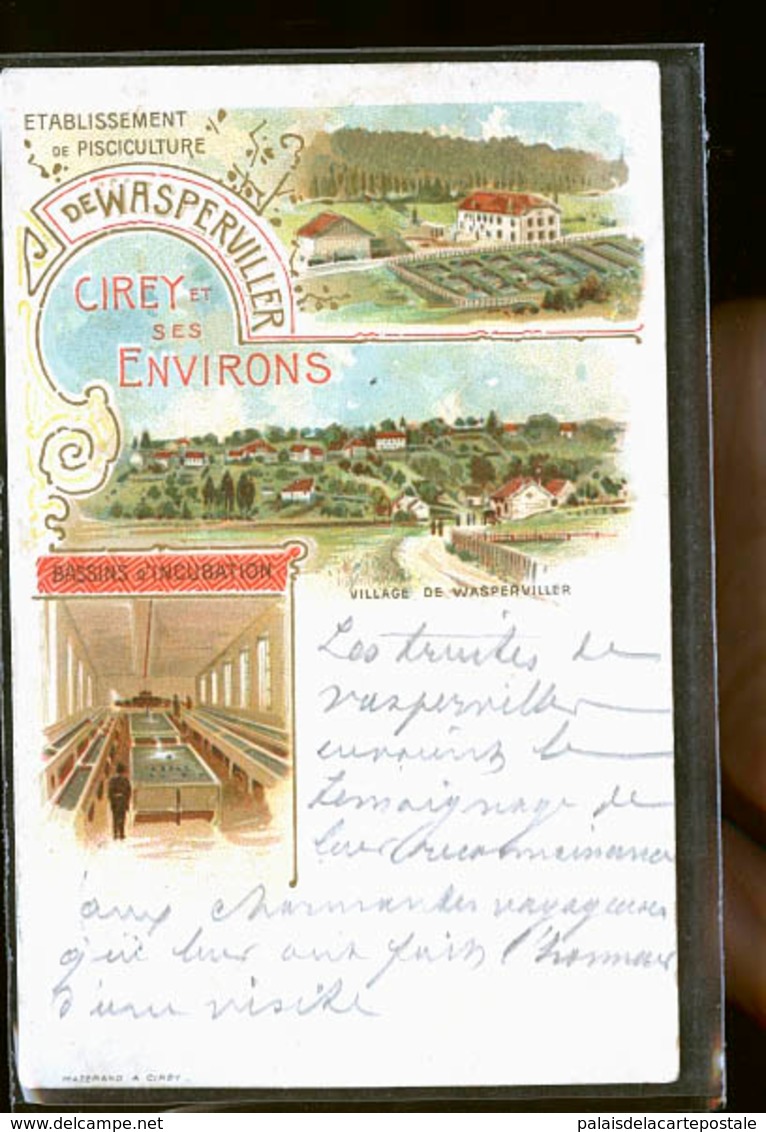 ETABLISSEMENT
DE PISCICULTURE
DE WASPERVILLER
CIREY ET
SES
ENVIRONS
BASSINS D'INCUBATION
VILLAGE DE WASPERVILLER
Les truites de
vasperviller
envoient le
temoignage de
leur reconnaissance
aux charmandes voyageuses
qui leur ont fait l'honneur
d'une visite
MATERAND A CIREY
palaisdelacartepostale